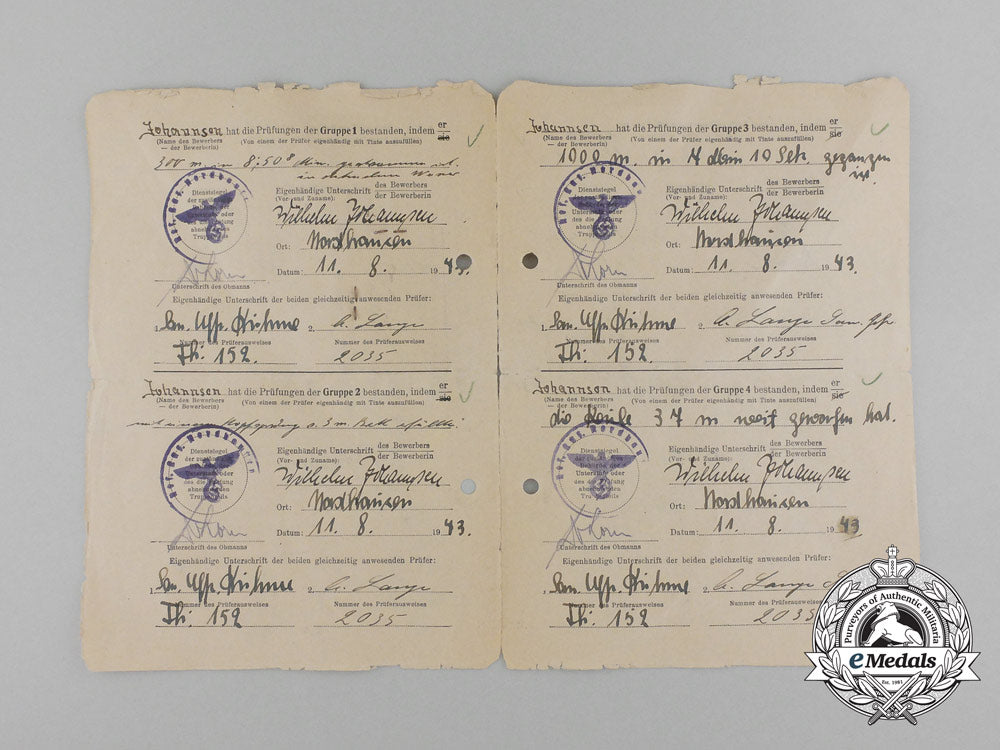 Johannsen hat die Prüfungen der Gruppe 1 bestanden, indem er
sie
(Name des Bewerbers (Von einem der Prüfer eigenhändig mit Tinte auszufüllen)
— der Bewerberin)
300 m in 8:50⁸ Min.
in Wasser
Dienstsiegel
Eigenhändige Unterschrift des Bewerbers
(Vor- und Zuname): der Bewerberin
Wilhelm Johannsen
Ort: Nordhausen
Datum: 11. 8. 1943.
Unterschrift des Obmanns
Eigenhändige Unterschrift der beiden gleichzeitig anwesenden Prüfer:
1. San. Uffz. 2. A. Lange
Nummer des Prüferausweises Nummer des Prüferausweises
Th: 152. 2035
Johannsen hat die Prüfungen der Gruppe 2 bestanden, indem er
sie
(Name des Bewerbers (Von einem der Prüfer eigenhändig mit Tinte auszufüllen)
— der Bewerberin)
mit einem Kopfsprung a. 3 m Brett
Ref. Aus. Nordhausen
Dienstsiegel
Eigenhändige Unterschrift des Bewerbers
(Vor- und Zuname): der Bewerberin
Wilhelm Johannsen
Ort: Nordhausen
Datum: 11. 8. 1943
Unterschrift des Obmanns
Eigenhändige Unterschrift der beiden gleichzeitig anwesenden Prüfer:
1. San. Uffz. 2. A. Lange
Nummer des Prüferausweises Nummer des Prüferausweises
Th: 152 2035
Johannsen hat die Prüfungen der Gruppe 3 bestanden, indem er
sie
(Name des Bewerbers (Von einem der Prüfer eigenhändig mit Tinte auszufüllen)
— der Bewerberin)
1000 m. in 4 Min 10 Sek. gegangen
ist.
Dienstsiegel
Eigenhändige Unterschrift des Bewerbers
(Vor- und Zuname): der Bewerberin
Wilhelm Johannsen
Ort: Nordhausen
Datum: 11. 8. 1943.
Unterschrift des Obmanns
Eigenhändige Unterschrift der beiden gleichzeitig anwesenden Prüfer:
1. San. Uffz. 2. A. Lange
Nummer des Prüferausweises Nummer des Prüferausweises
Th: 152 2035
Johannsen hat die Prüfungen der Gruppe 4 bestanden, indem er
sie
(Name des Bewerbers (Von einem der Prüfer eigenhändig mit Tinte auszufüllen)
— der Bewerberin)
die Keule 37 m weit geworfen hat.
Dienstsiegel
Eigenhändige Unterschrift des Bewerbers
(Vor- und Zuname): der Bewerberin
Wilhelm Johannsen
Ort: Nordhausen
Datum: 11. 8. 1943
Unterschrift des Obmanns
Eigenhändige Unterschrift der beiden gleichzeitig anwesenden Prüfer:
1. San. Uffz. 2. A. Lange
Nummer des Prüferausweises Nummer des Prüferausweises
Th: 152 2035
Purveyors of Authentic Militaria
eMedals
Est. 1981